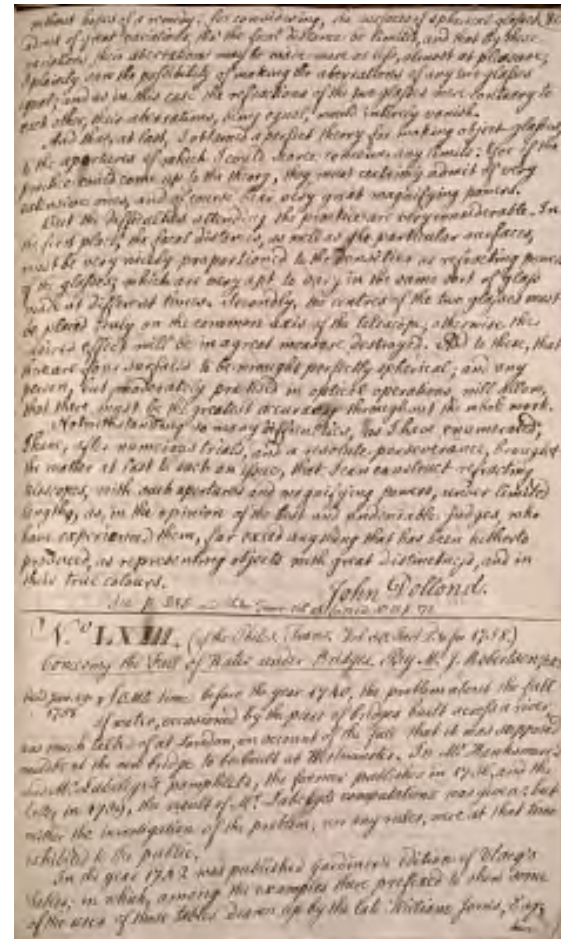 without hopes of a remedy: for considering, the surfaces of spherical glasses
admit of great variations, tho' the focal distance be limited, and that by these
variations their aberrations may be made more or less, almost at pleasure;
I plainly saw the possibility of making the aberrations of any two glasses
equal; and as in this case the refractions of the two glasses were contrary to
each other, their aberrations, being equal, would intirely vanish.
And thus, at last, I obtained a perfect theory for making object glasses,
to the apertures of which I could scarce conceive any limits: for if the
practice could come up to the theory, they must certainly admit of very
extensive ones, and of course bear very great magnifying powers.
But the difficulties attending the practice are very considerable. In
the first place, the focal distances, as well as the particular surfaces,
must be very nicely proportioned to the densities or refracting powers
of the glasses; which are very apt to vary in the same sort of glass
made at different times. Secondly, the centres of the two glasses must
be placed truly on the common axis of the telescope, otherwise the
desired effect will be in a great measure destroyed. Add to these, that
there are four surfaces to be wrought perfectly spherical; and any
person, but moderately practised in optical operations, will allow,
that there must be the greatest accuracy throughout the whole work.
Notwithstanding so many difficulties, as I have enumerated,
I have, after numerous trials, and a resolute perseverance, brought
the matter at last to such an issue, that I can construct refracting
telescopes, with such apertures and magnifying powers, under limited
lengths, as, in the opinion of the best and undeniable judges, who
have experienced them, far exceed anything that has been hitherto
produced, as representing objects with great distinctness, and in
their true colours.
John Dollond.
No. LXIII. (of the Philos. Trans. for 1758.)
Concerng the Fall of Water under Bridges. By Mr. J. Robertson
Read Jan. 19 Some time before the year 1740, the problem about the fall
1758 of water, occasioned by the piers of bridges built across a river,
was much talked of at London, on account of the fall that it was supposed
would be at the new bridge to be built at Westminster. In Mr. Hawksmore's
and Mr. Labelye's pamphlets, the former published in 1736, and the
latter in 1739, the result of Mr. Labelye's computations was given: but
neither the investigation of the problem, nor any rules, were at that time
exhibited to the public.
In the year 1742 was published Gardiner's edition of Vlacq's
Tables; in which, among the examples there prefixed to shew some
of the uses of those tables drawn up by the late William Jones, Esq;